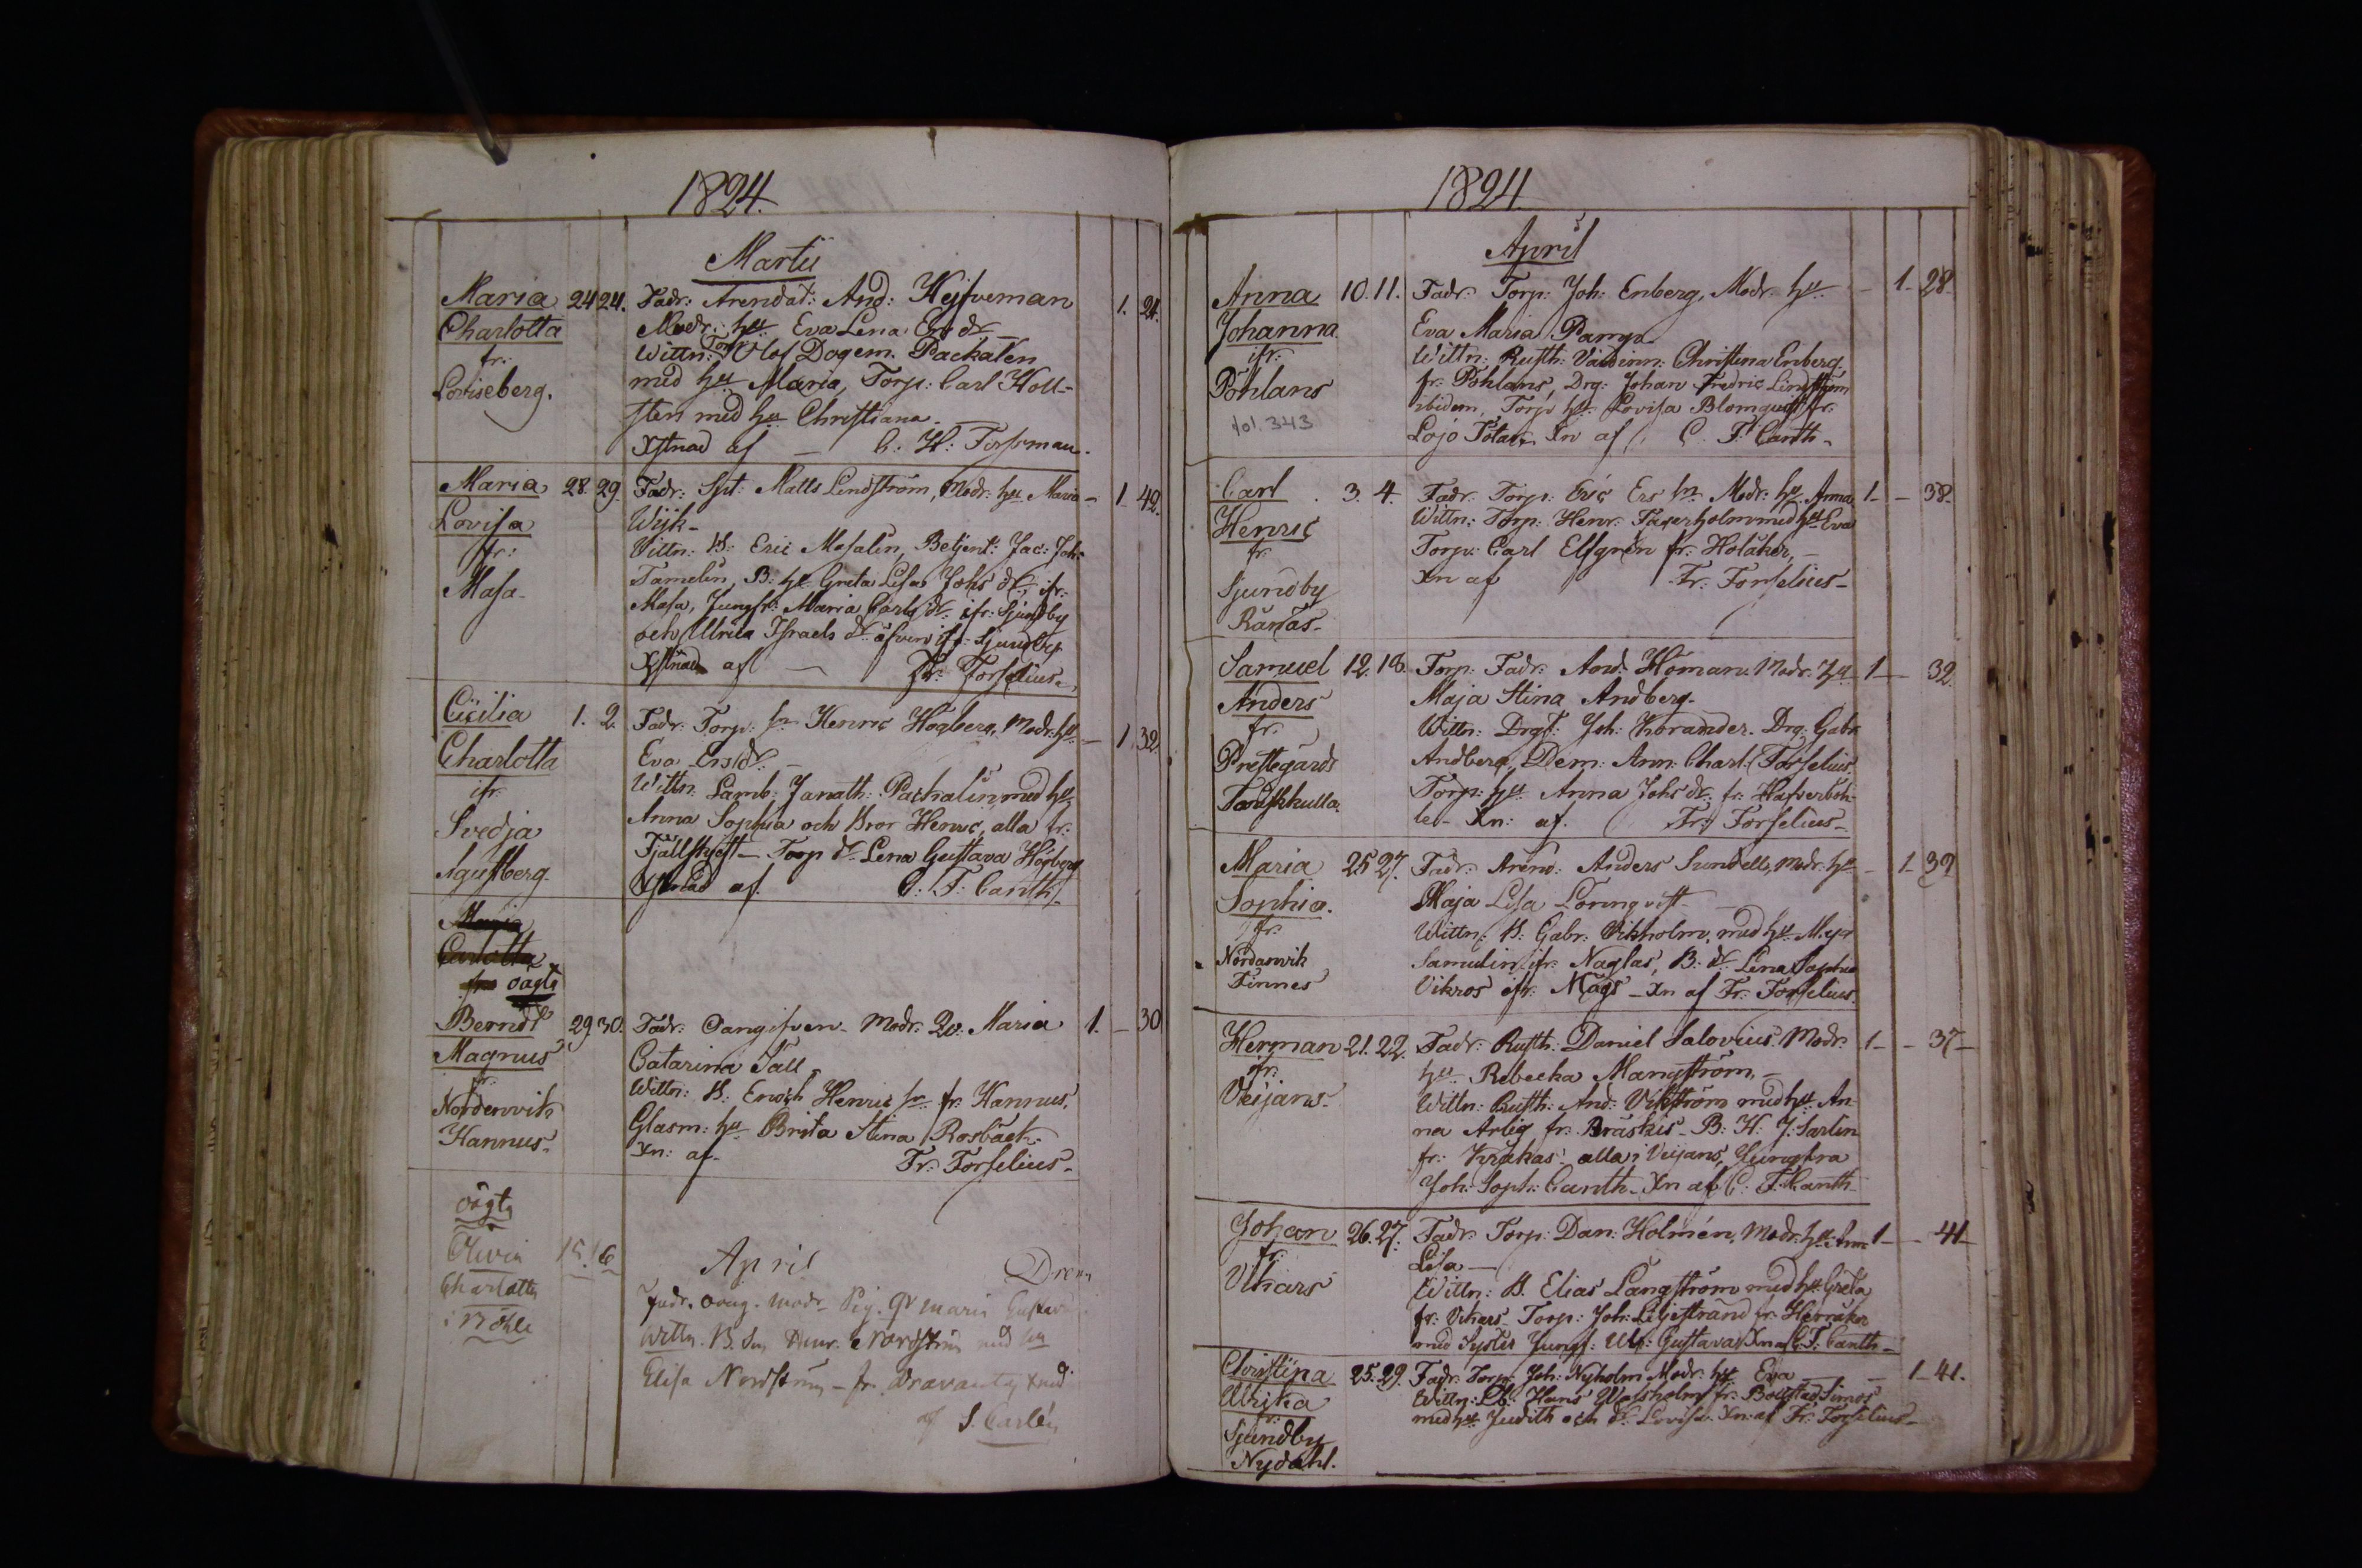 1824.
Martii
Maria 24 24. Fadr: Arendat: And: Hejfveman 1. 21.
Charlotta Modr: hu Eva Lena Ers dr
fr: Wittn: Torp Olof Dogem. Packalèn
Loviseberg. med hu Maria, Torp: Carl Holl-
sten med hu Christiana.
Xstnad af — C. H: Forsman.
Maria 28. 29. Fadr: Spt: Matts Lindström, Modr: hu Maria – 1 42.
Lovisa Wijk –
fr: Vittn: B: Eric Masalin, Betjent: Jac: Joh:
Masa – Tamelin, B: hu Greta Lisa Johs dr, ifr:
Masa, Jungfr: Maria Carls dr ifr: Sjundby
och Ulrica Israels dr äfven ifr: Sjundby
Xstnad af — Fr: Forselius –
Cicilia 1. 2. Fadr: Torp: sn Henric Högberg, Modr: hu – 1 32
Charlotta Eva Ersdr: –
ifr: Wittn: Lamb: Janath: Pachalin, med hu
Svedja Anna Sophia och Bror Henric, alla fr:
Agustberg. Fjällskjeft – Torp dr Lena Gustava Högberg
Xstnad af. C: F: Canth
Maria
Carlotta
oägta
Berndt 29 30. Fadr: Oangifven – Modr: Maria 1. – 30
Magnus Catarina Säll,
fr: Wittn: B: Enoch Henric sn fr: Hannus,
Nordervik Glasm: hu Brita Stina Rosbäck.
Hannus. Xn: af – Fr: Forselius –
oägta
Olivia 15. 16 April
Charlotta Fadr. Modr – Pig. Maria Gustava
i Böhle Wittn. B. Sn Henr. Nordström med hu
Elisa Nordström – fr.
af S. Carlén
1824.
April
Anna 10. 11. Fadr: Torp: Joh: Enberg, Modr: hu – 1 – 28
Johanna Eva Maria
ifr: Wittn: Rusth: Värdinn: Christina Enberg,
Pohlans fr: Pohlans, Drg: Johan Fredric Lindström
fol. 343 ibidem, Torp: hu Lovisa Blomqvist fr:
Lojo Xn af C. F. Canth –
Carl 3. 4. Fadr: Torp: Eric Ers sn Modr: hu Anna 1 – – 38
Henric Wittn: Torp: Henr: Fagerholm med hu Eva
fr Torp: Carl Elfgrén fr: Holåker, –
Sjundby Xn af Fr: Forselius –
Rånäs –
Samuel 12. 18. Torp: Fadr: And: Homan Modr: hu 1 – 32
Anders Maja Stina Andberg.
fr: Wittn: Drgt: Joh: Korander. Drg: Gabr
Prestegårds Andberg, Dem: Ann: Charl: Forselius.
Torp: hu Anna Johs dr: fr: Hafverböh-
le – Xn: af. Fr: Forselius –
Maria 25 27. Fadr: Arend: Anders Sundell, Modr: hu – 1 – 39
Sophia. Maja Lisa Lönnqvist –
fr: Wittn: B: Gabr: Vikholm, med hu
Nordanvik Samulin ifr: Naglas, B: dr Lena Sophia
Finnes Vikros ifr: Mågs – Xn af Fr: Forselius.
Herman 21. 22. Fadr: Rusth: Daniel Salovius. Modr: 1 – – 37 –
fr: hu Rebecka Mangström, –
Veijans – Wittn: Rusth: And: Vikström med hu An-
na Arlig fr: Bräskis – B: H: J: Sarlin
fr: Kråkas – alla i Veijans, Jungfra
Joh: Soph: Canth – Xn af C: F: Canth –
Johan 26. 27. Fadr: Torp: Dan: Holmén, Modr: hu Ann 1 – – 41 –
fr: Lisa –
Vikars Wittn: B. Elias Långström med hu Greta
fr: Vikars – Torp: Joh: Liljestrand fr: Herråker
med Syster Jungf: Ulr: Gustava Xn af C: F: Canth –
Christina 25. 29. Fadr: Torp: Joh: Nyholm Modr: hu Eva – 1 – 41.
Ulrika Wittn: Hans Walsholm fr: Bollstad Simos
fr: med hu Judith och dr Lovisa. Xn: af Fr: Forselius –
Sjundby
Nydahl.